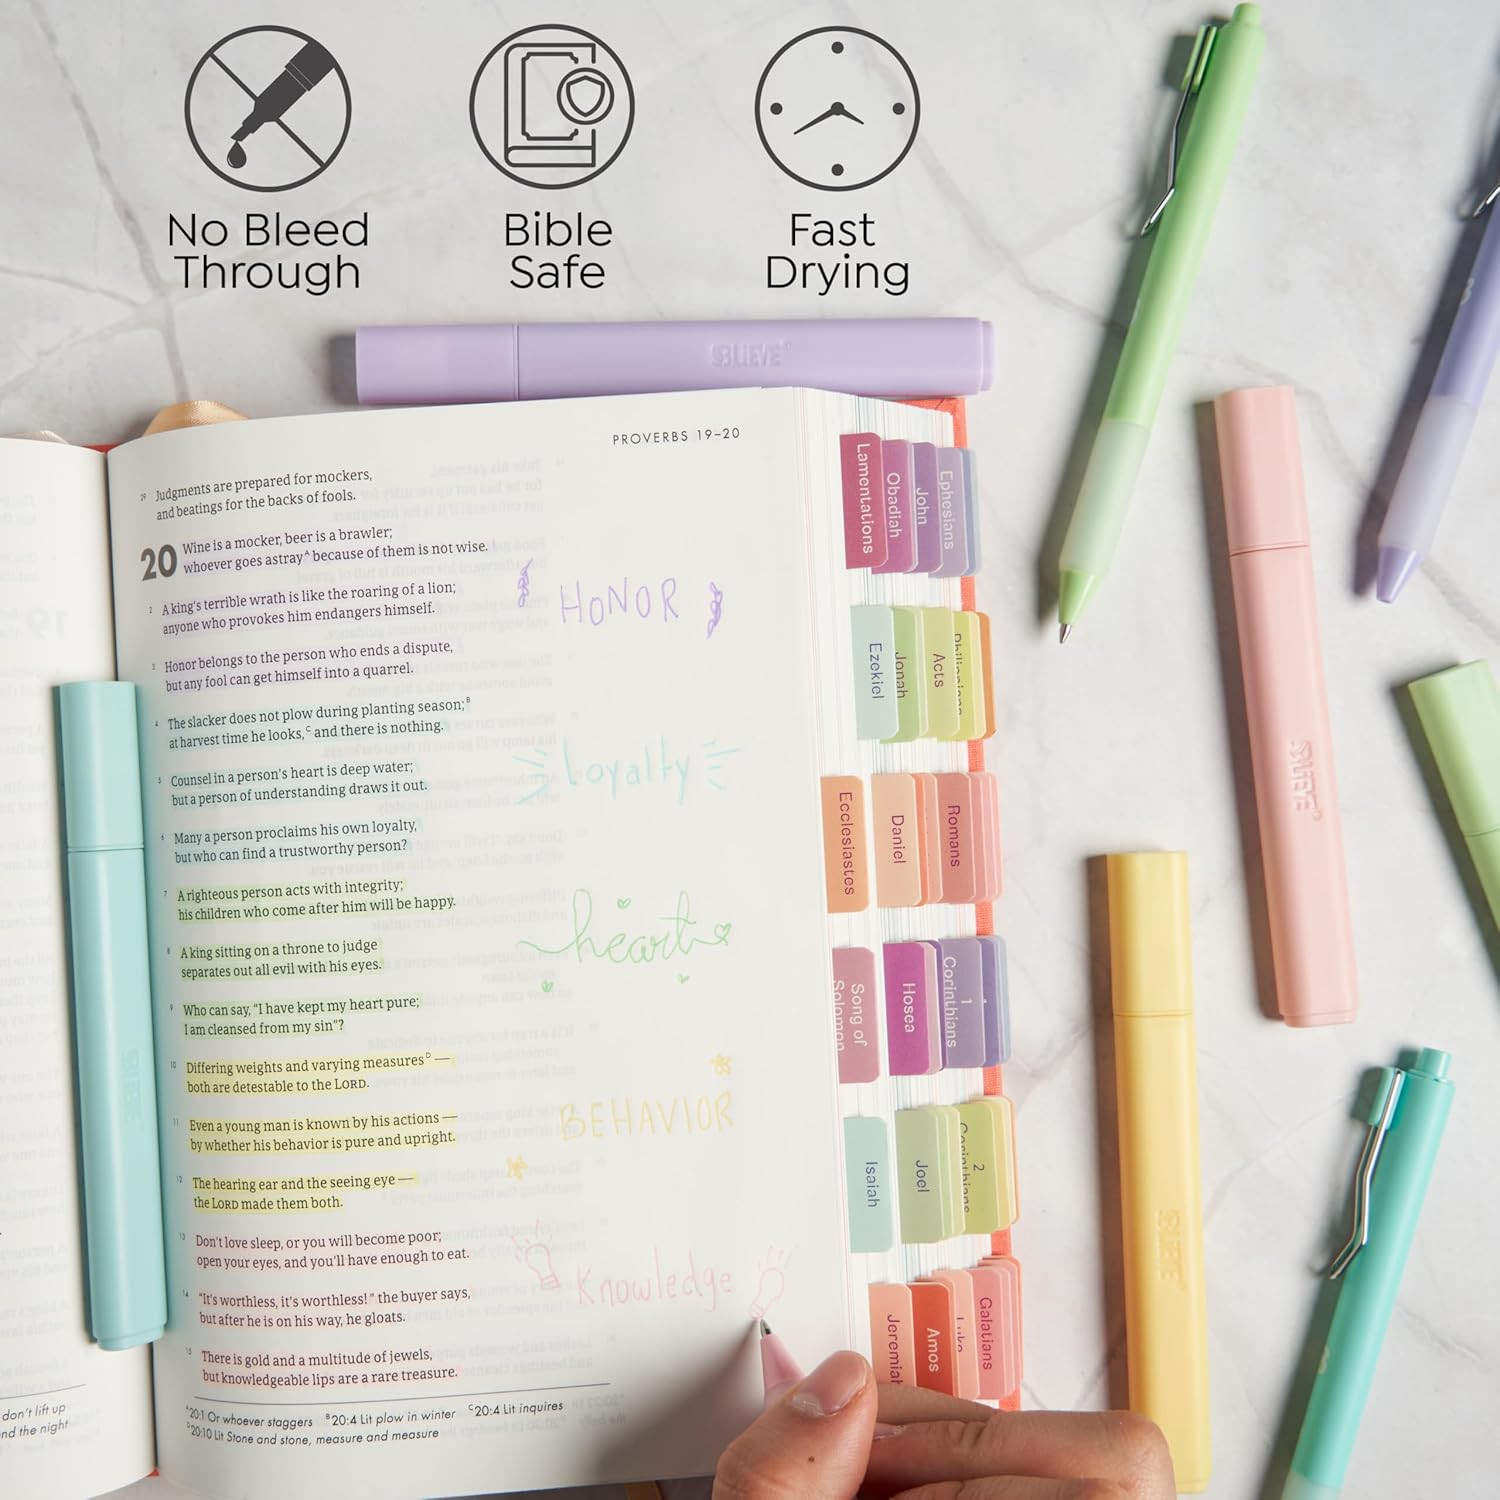 No Bleed
Through
Bible
Safe
Fast
Drying
PROVERBS 19–20
29 Judgments are prepared for mockers,
and beatings for the backs of fools.
20 Wine is a mocker, beer is a brawler;
whoever goes astray^A because of them is not wise.
2 A king's terrible wrath is like the roaring of a lion;
anyone who provokes him endangers himself.
3 Honor belongs to the person who ends a dispute,
but any fool can get himself into a quarrel.
4 The slacker does not plow during planting season;^B
at harvest time he looks,^C and there is nothing.
5 Counsel in a person's heart is deep water;
but a person of understanding draws it out.
6 Many a person proclaims his own loyalty,
but who can find a trustworthy person?
7 A righteous person acts with integrity;
his children who come after him will be happy.
8 A king sitting on a throne to judge
separates out all evil with his eyes.
9 Who can say, "I have kept my heart pure;
I am cleansed from my sin"?
10 Differing weights and varying measures^D —
both are detestable to the LORD.
11 Even a young man is known by his actions —
by whether his behavior is pure and upright.
12 The hearing ear and the seeing eye —
the LORD made them both.
13 Don't love sleep, or you will become poor;
open your eyes, and you'll have enough to eat.
14 "It's worthless, it's worthless!" the buyer says,
but after he is on his way, he gloats.
15 There is gold and a multitude of jewels,
but knowledgeable lips are a rare treasure.
^A20:1 Or whoever staggers ^B20:4 Lit plow in winter ^C20:4 Lit inquires
^D20:10 Lit Stone and stone, measure and measure
don't lift up
nd the night
HONOR
loyalty
heart
BEHAVIOR
Knowledge
Lamentations
Obadiah
John
Ephesians
Ezekiel
Jonah
Acts
Philippians
Ecclesiastes
Daniel
Romans
Song of
Solomon
Hosea
1
Corinthians
Isaiah
Joel
2
Corinthians
Jeremiah
Amos
Luke
Galatians